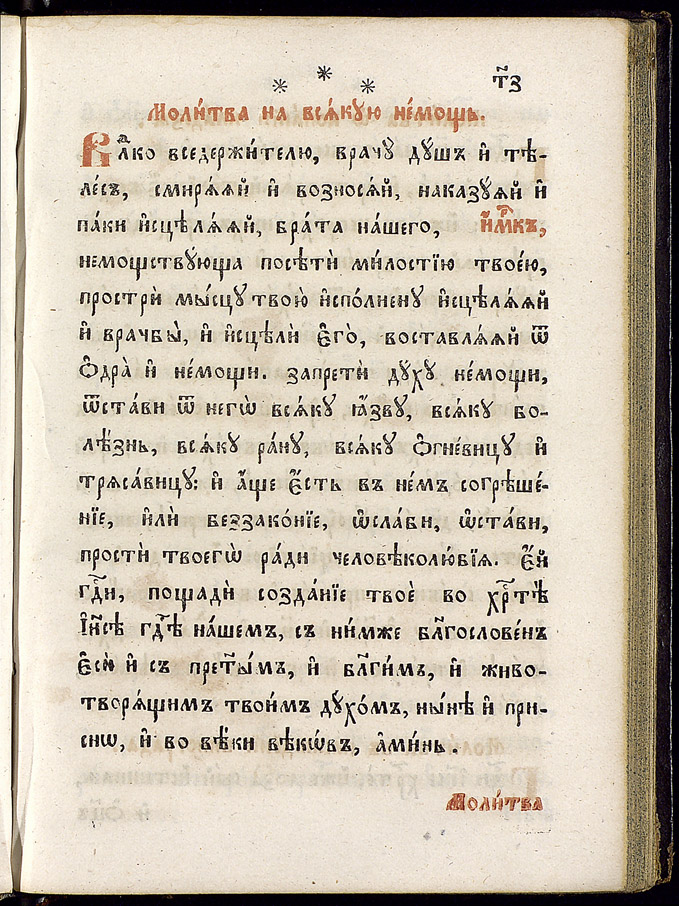 т҃з
Моли́тва на всѧ́кую не́мощь.
Влⷣко вседержи́телю, врачу̀ дꙋ́шъ и҆ тѣ-
ле́съ, смирѧ́ѧй и҆ возносѧ́й, наказꙋ́ѧй и҆
па́ки и҆сцѣлѧ́ѧй, бра́та на́шего, и҆́м҃къ,
немощствꙋ́юща посѣтѝ ми́лостїю твое́ю,
прострѝ мы́сцꙋ твою̀ и҆спо́лненꙋ и҆сцѣлѧ́ѧй
и҆ врачбы̀, и҆ и҆сцѣлѝ є҆го̀, воставлѧ́ѧй ѿ
ѻ҆дра̀ и҆ не́мощи. запретѝ дꙋ́хꙋ не́мощи,
ѿста́ви ѿ негѡ̀ всѧ́кꙋ ꙗ҆́звꙋ, всѧ́кꙋ бо-
лѣ́знь, всѧ́кꙋ ра́нꙋ, всѧ́кꙋ ѻ҆гне́вицꙋ и҆
трѧса́вицꙋ: и҆ а҆́ще є҆́сть въ не́мъ согрѣше́-
нїе, и҆лѝ беззако́нїе, ѡ҆сла́би, ѡ҆ста́ви,
простѝ твоегѡ̀ ра́ди человѣколю́бїѧ. є҆́й
гдⷭ҇и, пощадѝ созда́нїе твоѐ во хрⷭ҇тѣ̀
і҆и҃сѣ гдⷭ҇ѣ на́шемъ, съ ни́мже блⷢ҇ослове́нъ
є҆сѝ и҆ съ прест҃ы́мъ, и҆ бл҃ги́мъ, и҆ живо-
творѧ́щимъ твои́мъ дꙋ́хо́мъ, ны́нѣ и҆ при́-
снѡ, и҆ во вѣ́ки вѣкѡ́въ, а҆ми́нь.
Моли́тва